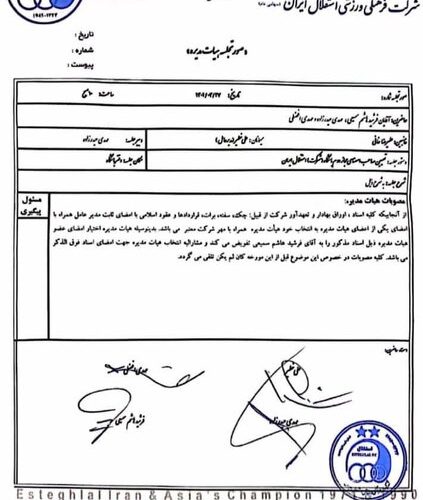 شرکت فرهنگی ورزشی استقلال ایران (سهامی عام)
تاریخ :
شماره :
پیوست :
«صورتجلسه هیات مدیره»
صورتجلسه شماره : تاریخ: ساعت:
حاضرین: آقایان فرشید هاشم سمیعی، مهدی حیدرزاده، مهدی افضلی
غایبین: علیرضا خانی مدعوین: علی خطیر دبیر جلسه: مهدی حیدرزاده
دستور جلسه: تعیین صاحب امضای مجاز شرکت استقلال ایران مکان جلسه: دفتر باشگاه
شرح جلسه: به شرح ذیل
مصوبات هیات مدیره:
مسئول پیگیری
از آنجاییکه کلیه اسناد ، اوراق بهادار و تعهدآور شرکت از قبیل: چک، سفته، برات، قراردادها و عقود اسلامی با امضای ثابت مدیر عامل همراه با
امضای یکی از اعضای هیات مدیره به انتخاب خود هیأت مدیره همراه با مهر شرکت معتبر می باشد. بدینوسیله هیات مدیره اختیار امضای عضو
هیات مدیره ذیل اسناد مذکور را به آقای فرشید هاشم سمیعی تفویض می کند و مشارالیه انتخاب هیات مدیره جهت امضای اسناد فوق الذکر
می باشد. کلیه مصوبات در خصوص این موضوع قبل از این مورخه کان لم یکن تلقی می گردد.
مهدی افضلی علی خطیر
فرشید هاشم سمیعی مهدی حیدرزاده
Esteghlal Iran & Asia's Champion 1970 1990